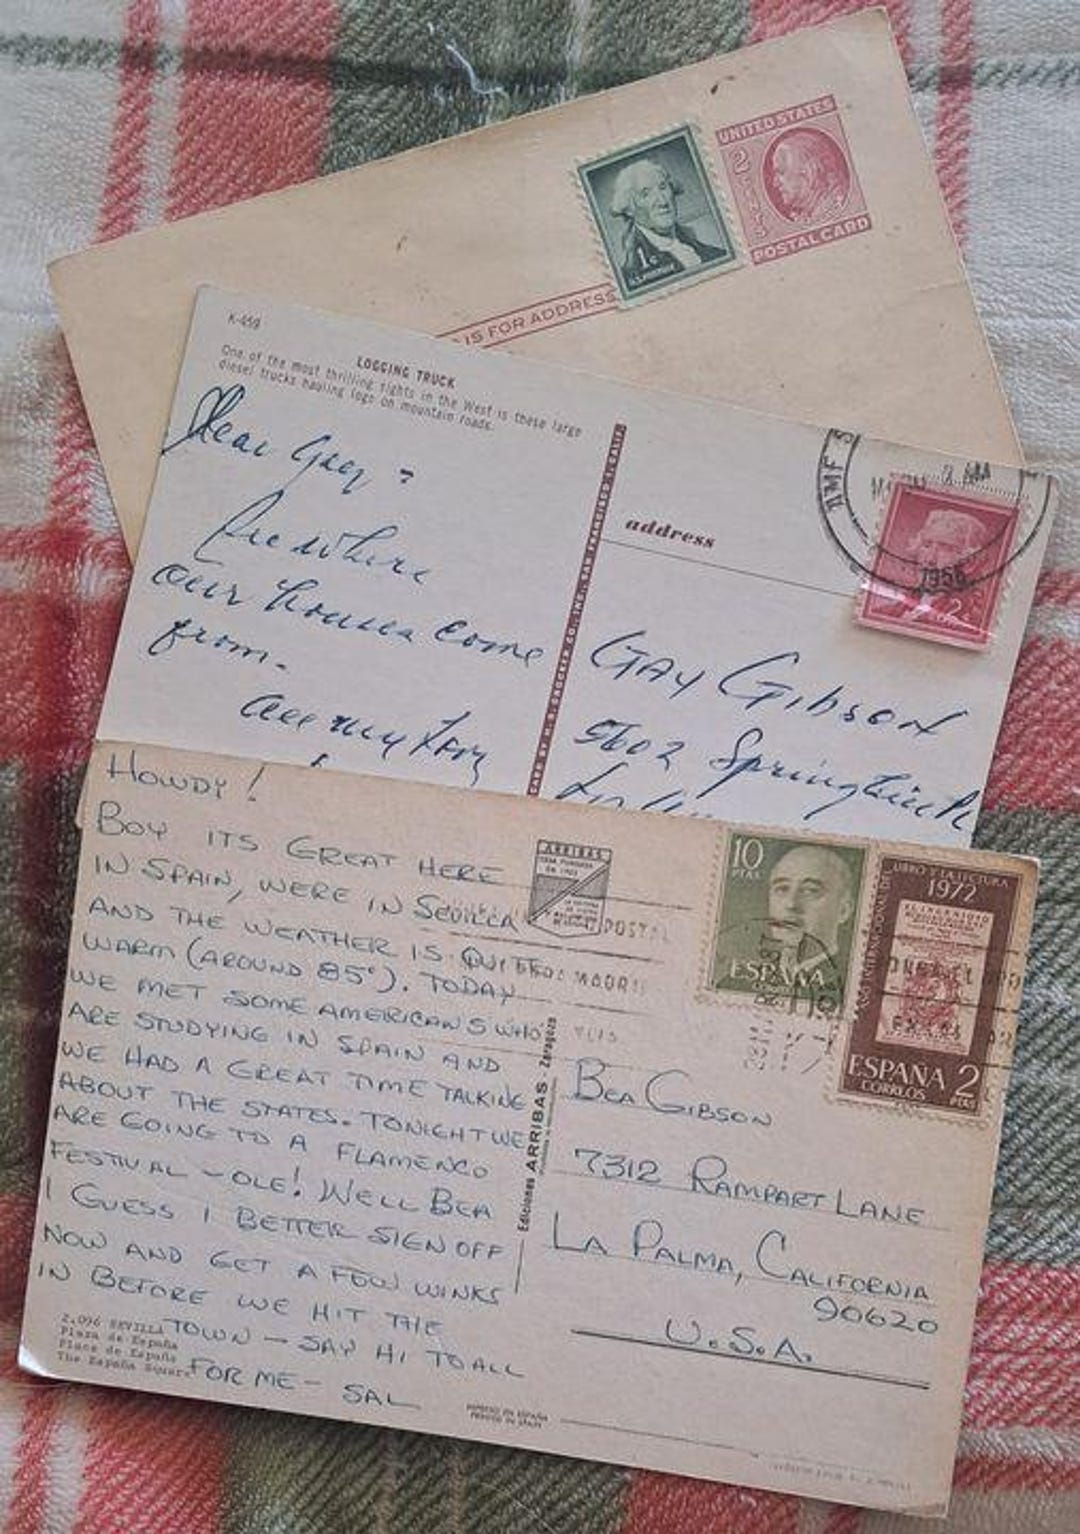 UNITED STATES
2 CENTS
POSTAL CARD
1¢
IS FOR ADDRESS
K-459
LOGGING TRUCK
One of the most thrilling sights in the West is these large
diesel trucks hauling logs on mountain roads.
Dear Gay -
See where
our houses come
from.
all my love
address
AMF
AM
1956
2
Gay Gibson
5602
HOWDY!
BOY ITS GREAT HERE
IN SPAIN, WERE IN SEVILLA
AND THE WEATHER IS QUITE
WARM (AROUND 85°). TODAY
WE MET SOME AMERICANS WHO
ARE STUDYING IN SPAIN AND
WE HAD A GREAT TIME TALKING
ABOUT THE STATES. TONIGHT WE
ARE GOING TO A FLAMENCO
FESTIVAL - OLE! WELL BEA
I GUESS I BETTER SIGN OFF
NOW AND GET A FEW WINKS
IN BEFORE WE HIT THE
TOWN - SAY HI TO ALL
FOR ME - SAL
2.096 SEVILLA
Plaza de España
Place de España
The España Square
ARRIBAS
POSTAL
MADRID
Ediciones ARRIBAS - Zaragoza
10
PTAS
ESPAÑA
1972
ESPAÑA 2
CORREOS PTAS
BEA GIBSON
7312 RAMPART LANE
LA PALMA, CALIFORNIA
90620
U.S.A.
IMPRESO EN ESPAÑA
PRINTED IN SPAIN